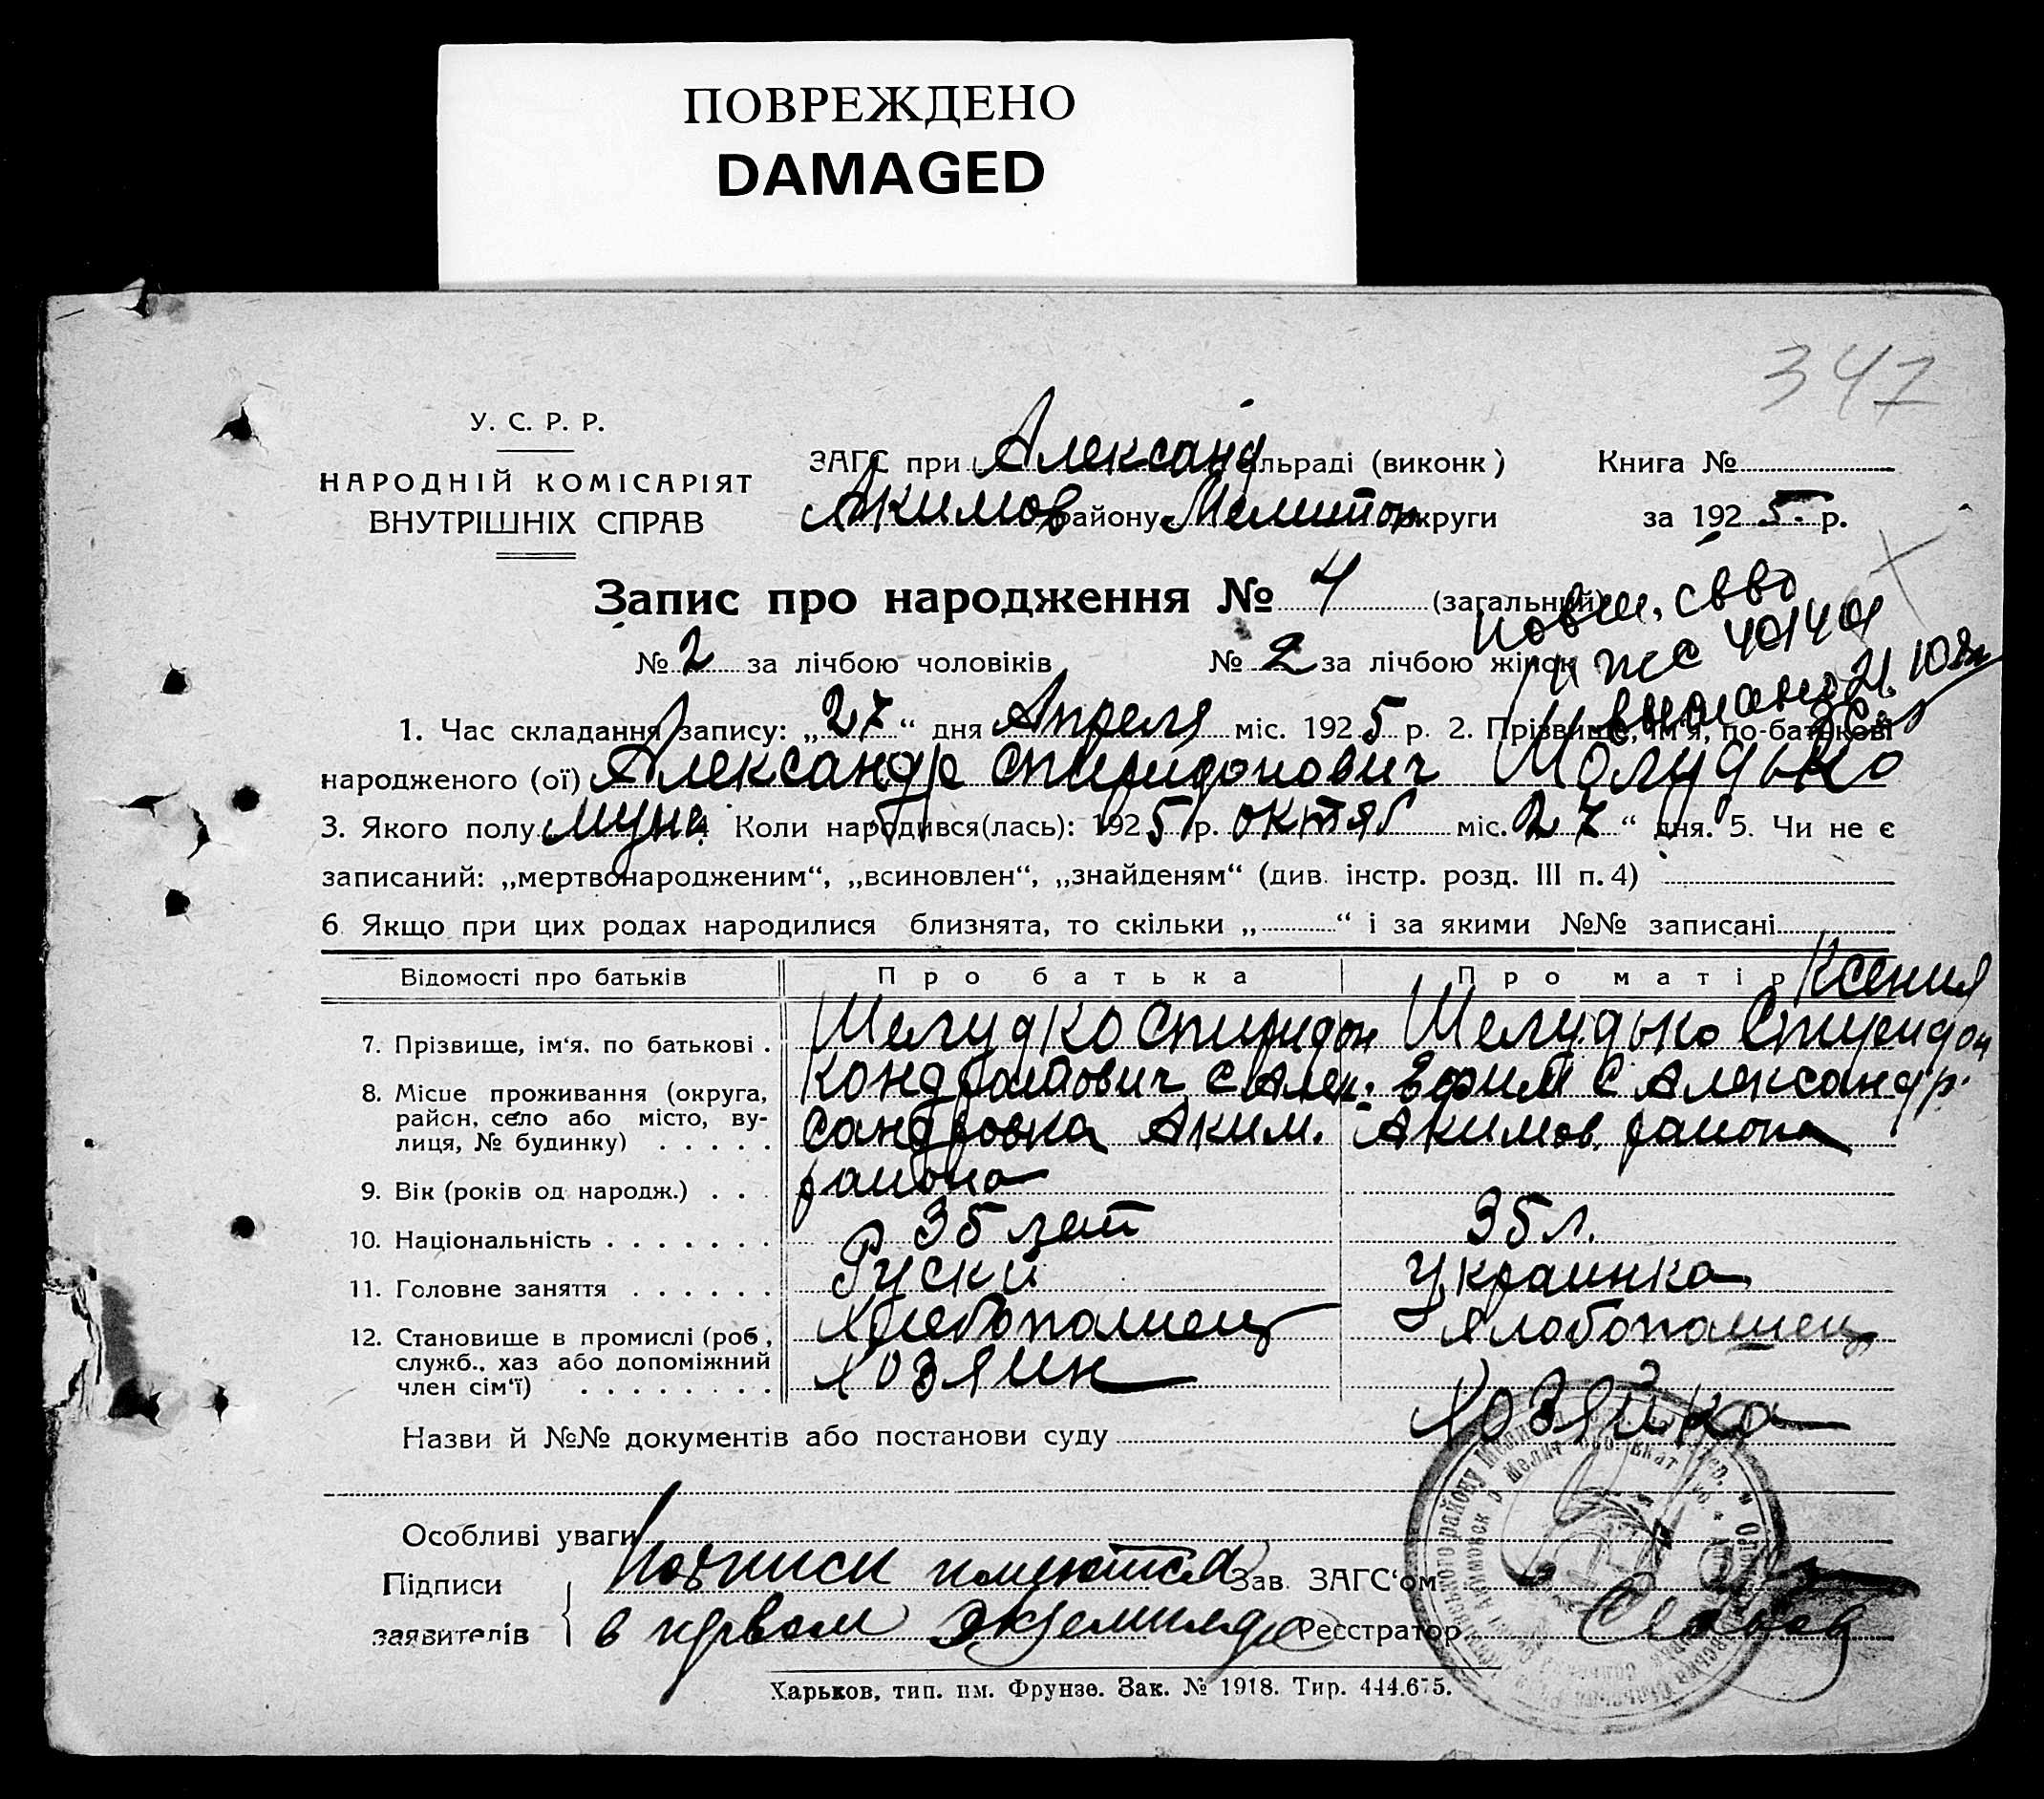 ПОВРЕЖДЕНО
DAMAGED
347
У. С. Р. Р.
НАРОДНІЙ КОМІСАРІЯТ
ВНУТРІШНІХ СПРАВ
ЗАГС при Александ сільраді (виконк)
Акимов району Мелитоп округи
Книга №
за 1925 р.
Запис про народження № 4 (загальний)
№ 2 за лічбою чоловіків № 2 за лічбою жінок
401401
выдано 21.10
1. Час складання запису: „27“ дня Апреля міс. 1925 р. 2. Прізвище, ім'я, по-батькові
народженого (ої) Александр Спиридонович Шолудько
3. Якого полу муж. 4 Коли народився(лась): 1925 р. октяб міс. 27 “ дня. 5. Чи не є
записаний: „мертвонародженим“, „всиновлен“, „знайденям“ (див. інстр. розд. III п. 4)
6 Якщо при цих родах народилися близнята, то скільки „ “ і за якими №№ записані
Відомості про батьків Про батька Про матір Ксения
7. Прізвище, ім‘я. по батькові . Шелудко Спиридон Шелудько Спиридон
8. Місце проживання (округа, Кондратович с Алек- Ефим с Александр.
район, село або місто, ву-
лиця, № будинку) . . . . . сандровка Аким. Акимов. района
9. Вік (років од народж.) . . . района
10. Національність . . . . . . . 35 лет 35 л.
11. Головне заняття . . . . . . Руски Украинка
12. Становище в промислі (роб, Хлебопашец Хлобопашец
служб., хаз або допоміжний
член сім‘ї) . . . . . . . . Хозяин Хозяйка
Назви й №№ документів або постанови суду
Особливі уваги
Підписи Подписи имеются Зав. ЗАГС‘ом
заявителів в первом экземпляре Реєстратор
Харьков, тип. им. Фрунзе. Зак. № 1918. Тир. 444.675.